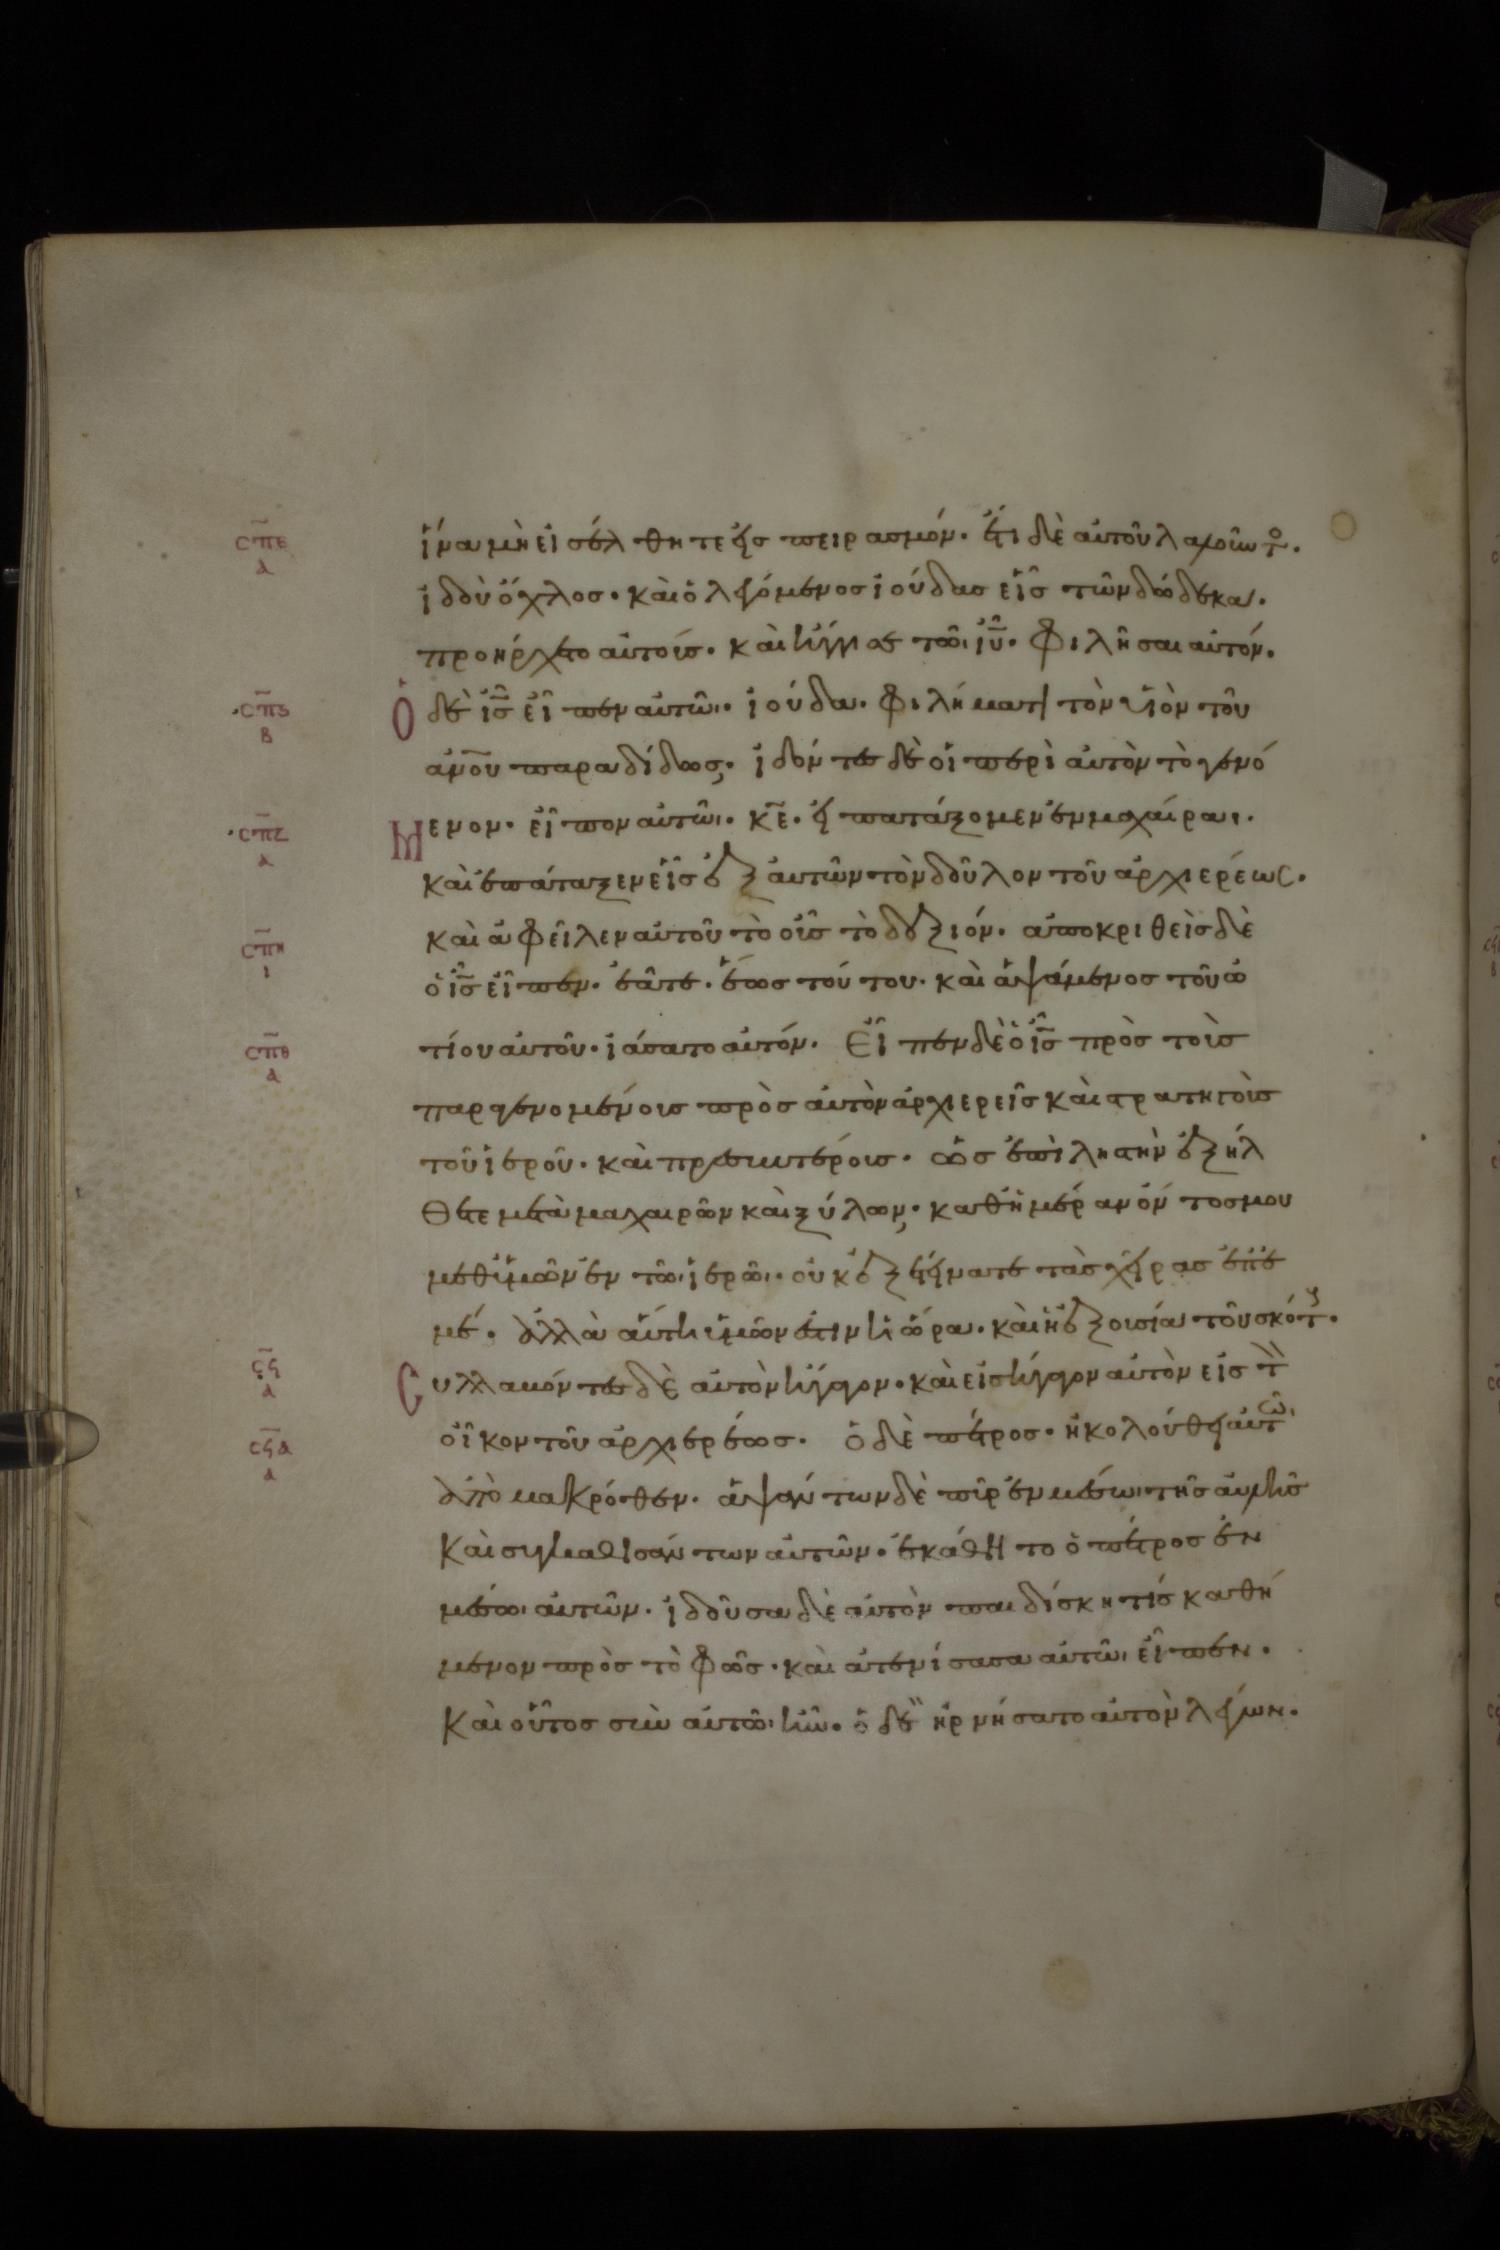 ἵνα μὴ εἰσέλθητε εἰς πειρασμόν. ἔτι δὲ αὐτοῦ λαλοῦντο.
ἰδοὺ ὄχλος. καὶ ὁ λεγόμενος ἰούδας εἷς τῶν δώδεκα.
προήρχετο αὐτοῖς. καὶ ἤγγισε τῶι ιῡ. φιλῆσαι αὐτόν.
Ὁ δὲ ις̄ εἶπεν αὐτῶι. ἰούδα. φιλήματι τὸν υἱὸν τοῦ
ανο̄υ παραδίδως; ἰδόντες δὲ οἱ περὶ αὐτὸν τὸ γενό
μενον. εἶπον αὐτῶι. κε̄. εἰ πατάξομεν ἐν μαχαίραι.
καὶ ἐπάταξεν εἷς ἐξ αὐτῶν τὸν δοῦλον τοῦ ἀρχιερέως.
καὶ ἀφεῖλεν αὐτοῦ τὸ οὖς τὸ δεξιόν. ἀποκριθεὶς δὲ
ὁ ις̄ εἶπεν. ἐᾶτε. ἕως τούτου. καὶ ἁψάμενος τοῦ ὠ
τίου αὐτοῦ. ἰάσατο αὐτόν. Εἶπεν δὲ ὁ ις̄ πρὸς τοὺς
παραγενομένους πρὸς αὐτὸν ἀρχιερεῖς καὶ στρατηγοὺς
τοῦ ἱεροῦ. καὶ πρεσβυτέρους. ὡς ἐπὶ ληστὴν ἐξήλ
θετε μετὰ μαχαιρῶν καὶ ξύλων; καθ' ἡμέραν ὄντος μου
μεθ' ὑμῶν ἐν τῶι ἱερῶι. οὐκ ἐξετείνατε τὰς χεῖρας ἐπ' ἐ
μέ. ἀλλὰ αὕτη ὑμῶν ἐστιν ἡ ὥρα. καὶ ἡ ἐξουσία τοῦ σκότ.
Συλλαβόντες δὲ αὐτὸν ἤγαγον. καὶ εἰσήγαγον αὐτὸν εἰς τ
οἶκον τοῦ ἀρχιερέως. ὁ δὲ πέτρος. ἠκολούθει αὐτῶι
ἀπὸ μακρόθεν. ἁψάντων δὲ πῦρ ἐν μέσωι τῆς αὐλῆς
καὶ συγκαθισάντων αὐτῶν. ἐκάθητο ὁ πέτρος ἐν
μέσωι αὐτῶν. ἰδοῦσα δὲ αὐτὸν παιδίσκη τὶς καθή
μενον πρὸς τὸ φῶς. καὶ ἀτενίσασα αὐτῶι εἶπεν.
καὶ οὗτος σὺν αὐτῶι ἦν. ὁ δὲ ἠρνήσατο αὐτὸν λέγων.
σπε̄
α
σπς̄
β
σπζ̄
α
σπη̄
ι
σπθ̄
α
σϟ̄
α
σϟᾱ
α